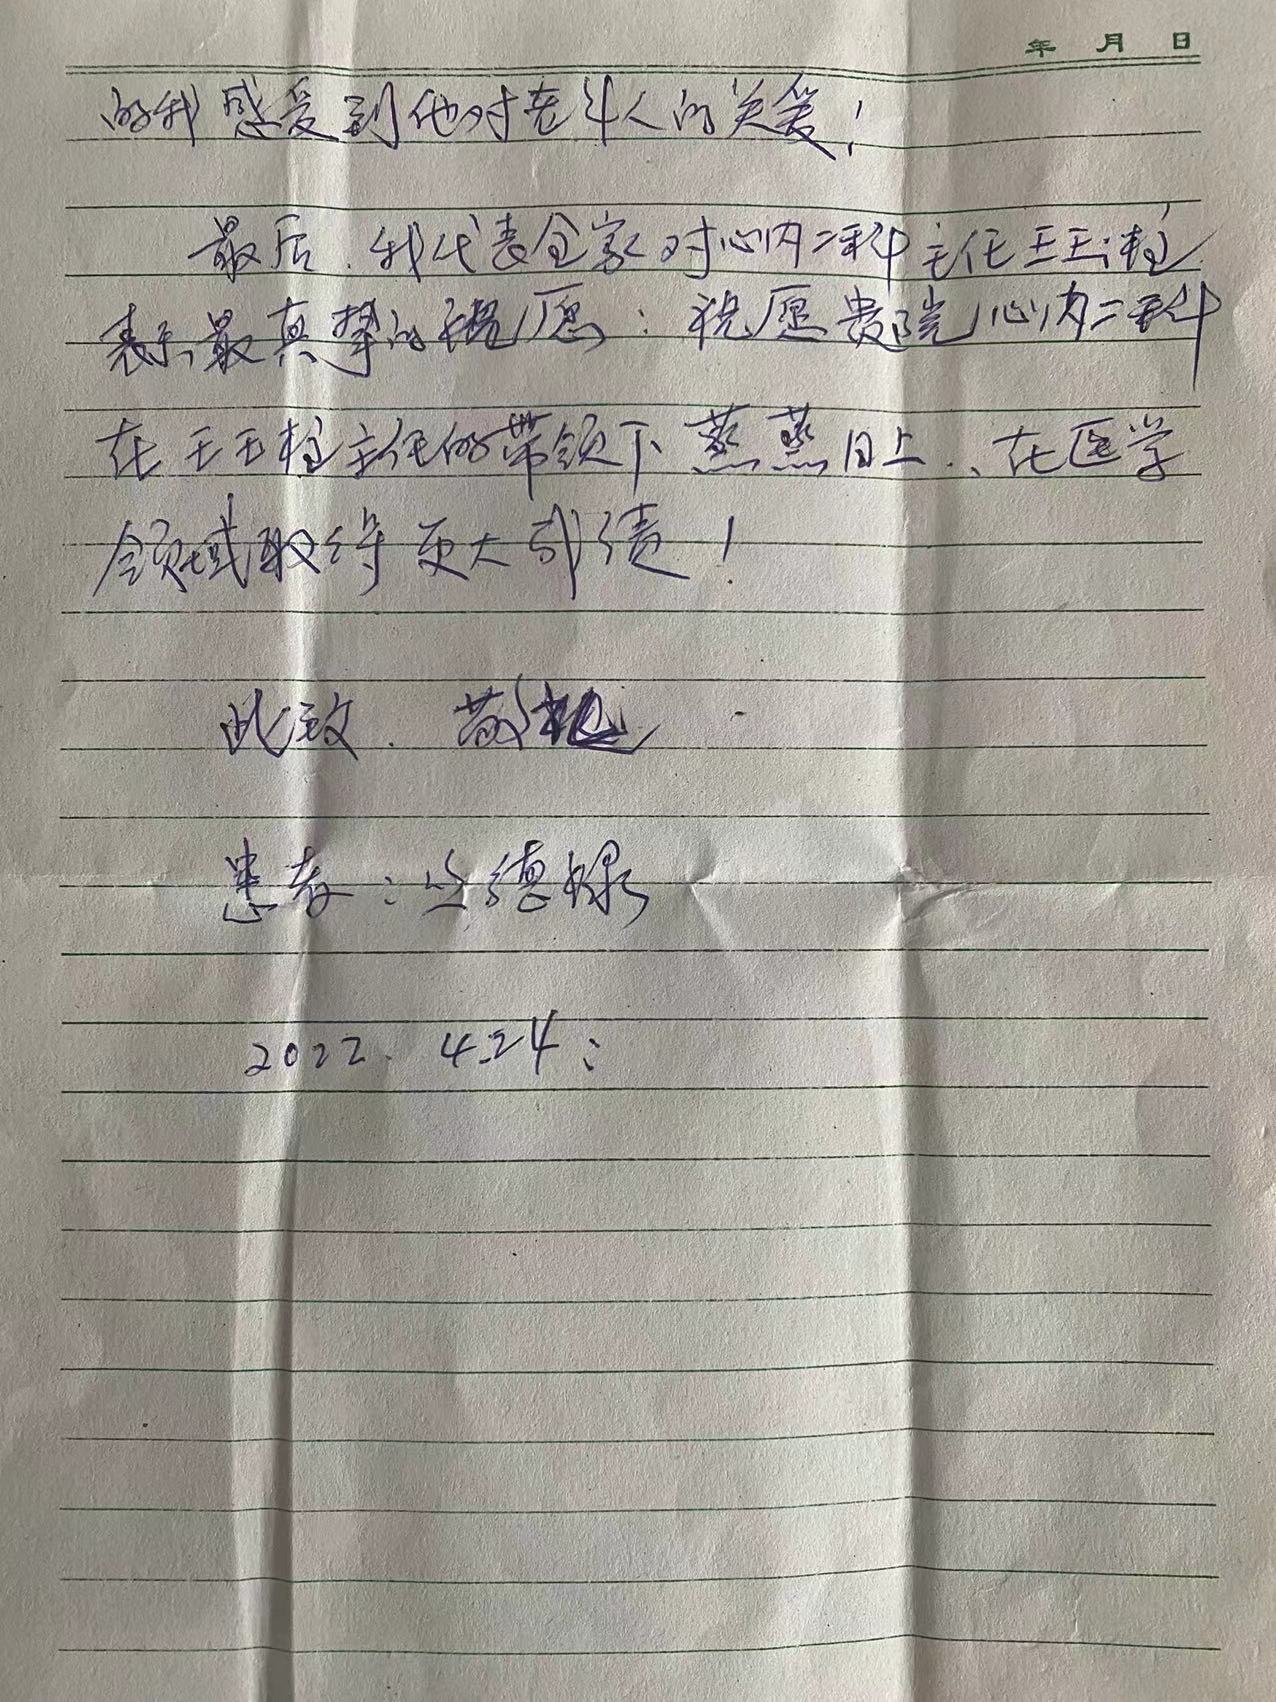 年 月 日
的我感受到他对老年人的关爱!
最后.我代表全家对心内二科主任王玉柱
表示最真挚的祝愿:祝愿贵院心内二科
在王玉柱主任的带领下蒸蒸日上、在医学
领域取得更大成绩!
此致.敬礼
患者:兰德禄
2022.4.24: